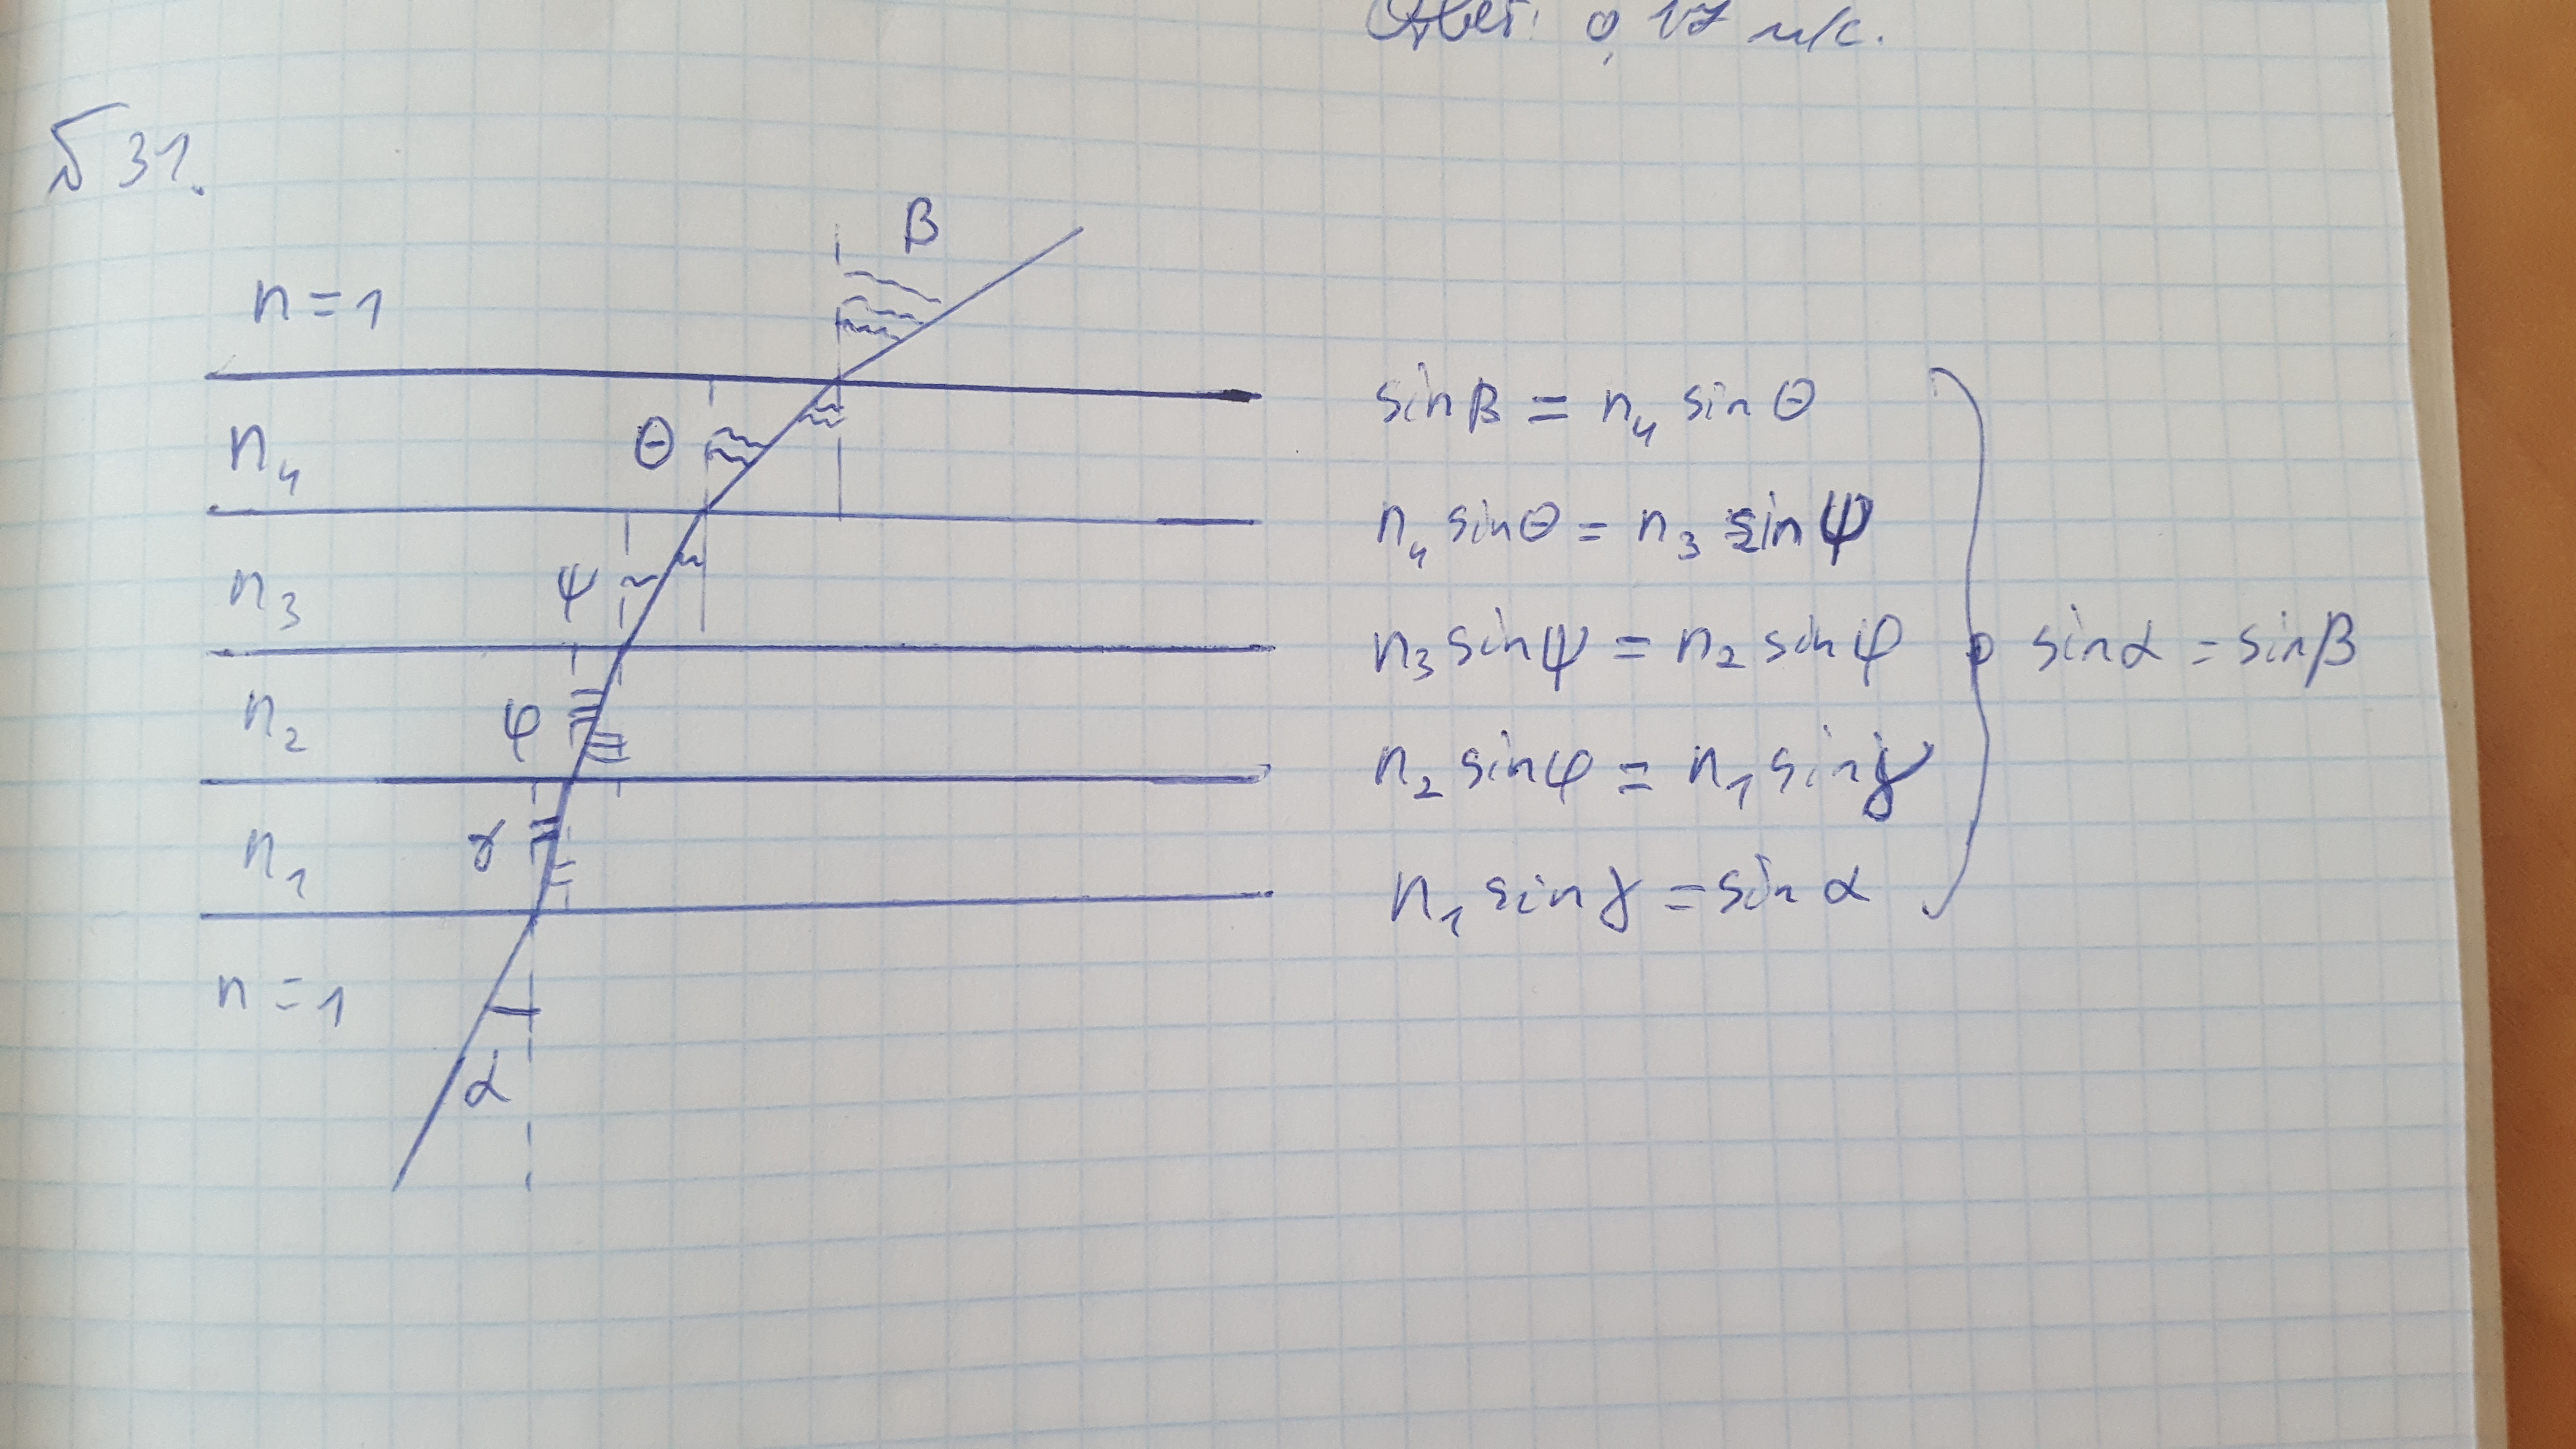 Ответ: 0,17 м/с.
№ 31.
β
n = 1
θ
n₄
ψ
n₃
φ
n₂
γ
n₁
n = 1
α
sin β = n₄ sin θ
n₄ sin θ = n₃ sin ψ
n₃ sin ψ = n₂ sin φ
sin α = sin β
n₂ sin φ = n₁ sin γ
n₁ sin γ = sin α